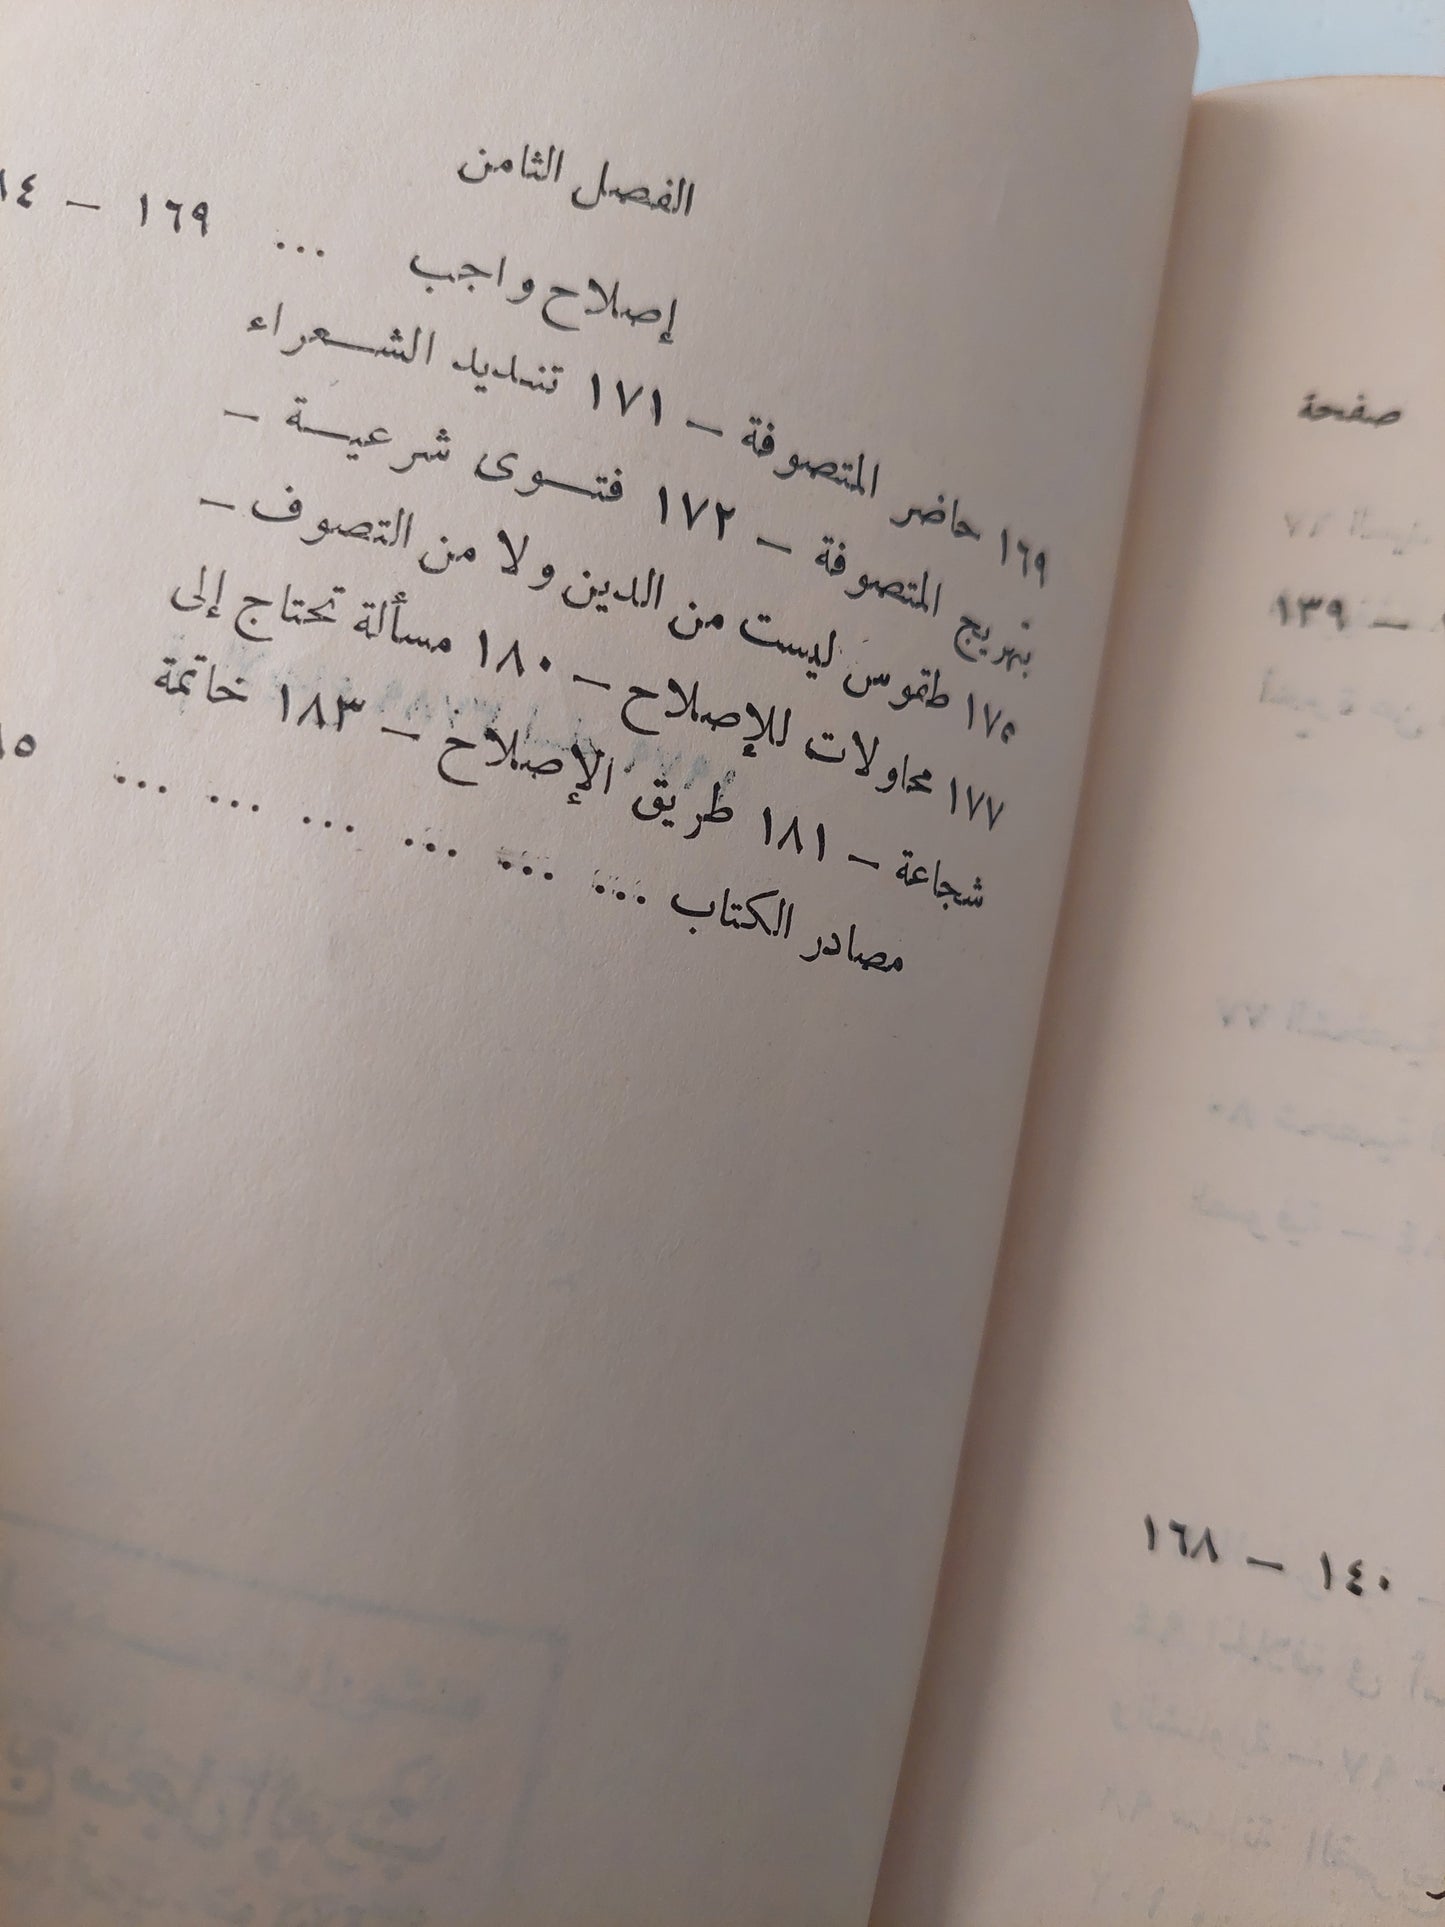 الفصل الثامن
إصلاح واجب ... ١٦٩ –
١٦٩ حاضر المتصوفة – ١٧١ تنديد الشعراء
بتهريج المتصوفة – ١٧٢ فتوى شرعية –
١٧٥ طقوس ليست من الدين ولا من التصوف –
١٧٧ محاولات للإصلاح – ١٨٠ مسألة تحتاج إلى
شجاعة – ١٨١ طريق الإصلاح – ١٨٣ خاتمة
مصادر الكتاب ... ... ... ... ... ...
صفحة
– ١٣٩
١٤٠ – ١٦٨